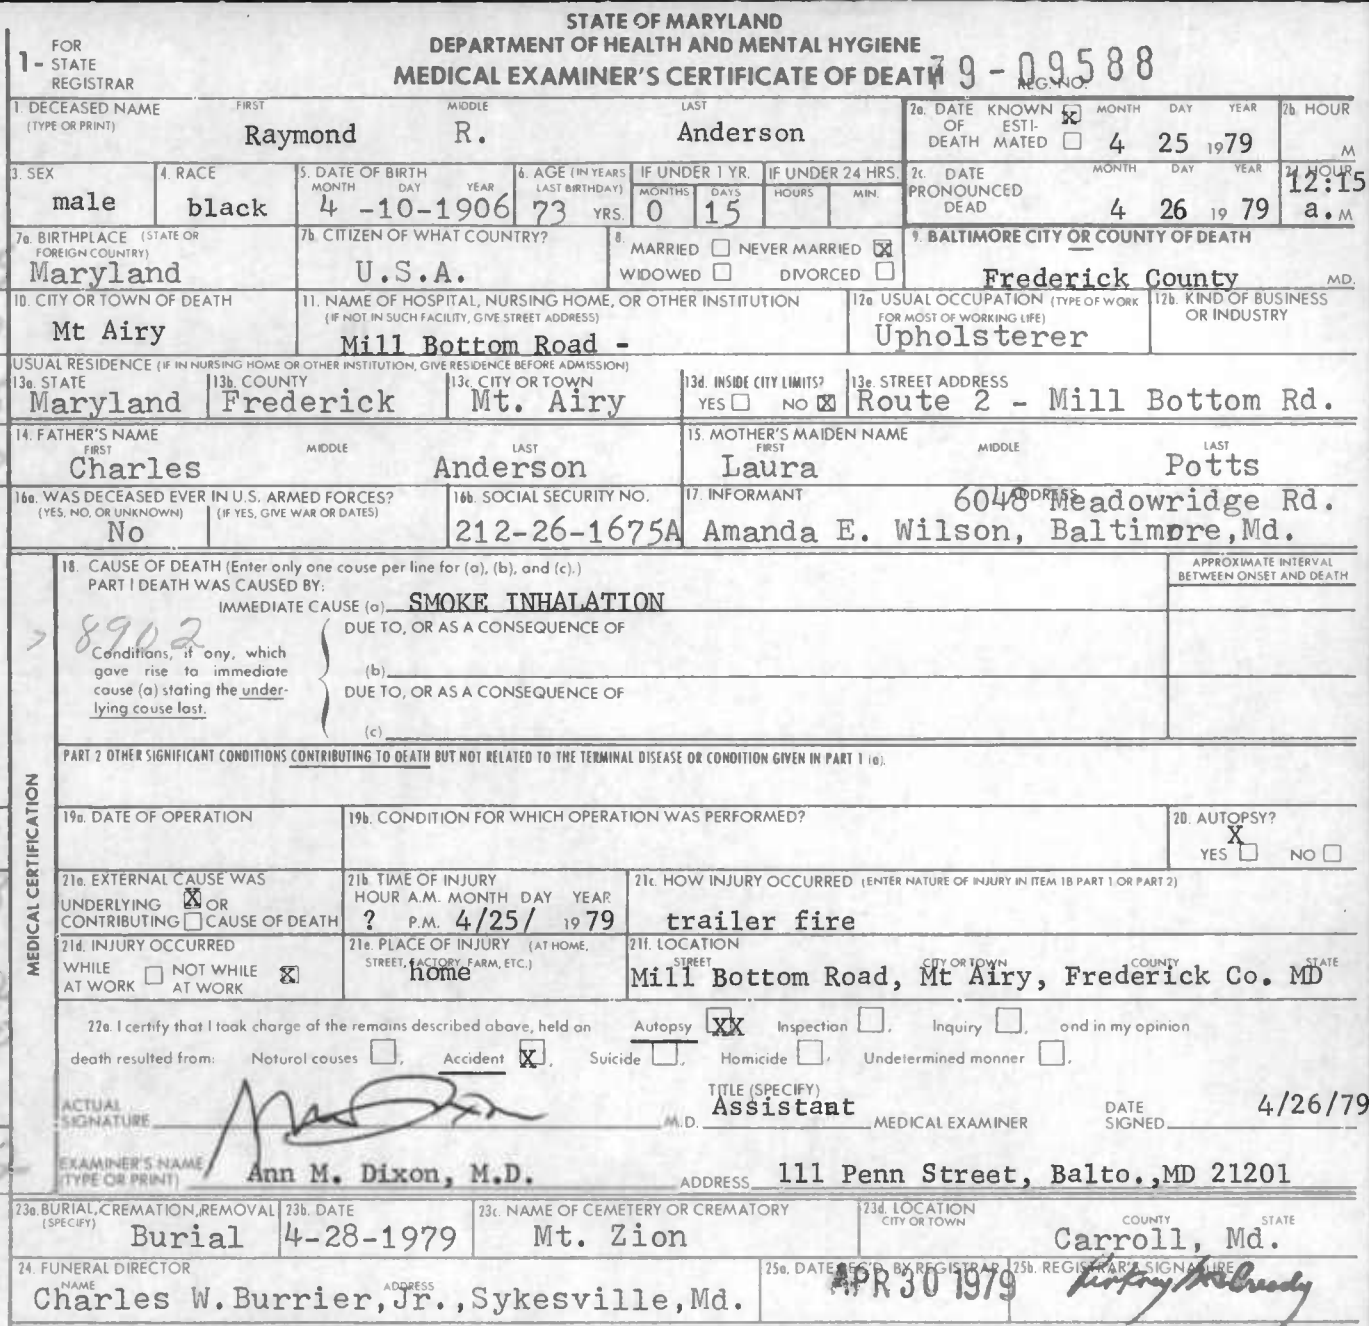 STATE OF MARYLAND
DEPARTMENT OF HEALTH AND MENTAL HYGIENE
MEDICAL EXAMINER'S CERTIFICATE OF DEATH
1 - FOR STATE REGISTRAR
79-09588
REG. NO.
1. DECEASED NAME (TYPE OR PRINT) FIRST MIDDLE LAST
Raymond R. Anderson
2a. DATE OF DEATH KNOWN X ESTIMATED MONTH DAY YEAR
4 25 1979
2b. HOUR M
3. SEX male
4. RACE black
5. DATE OF BIRTH MONTH DAY YEAR
4 -10-1906
6. AGE (IN YEARS LAST BIRTHDAY) 73 YRS.
IF UNDER 1 YR. MONTHS DAYS 0 15
IF UNDER 24 HRS. HOURS MIN.
2c. DATE PRONOUNCED DEAD MONTH DAY YEAR
4 26 19 79
HOUR 12:15 a. M
7a. BIRTHPLACE (STATE OR FOREIGN COUNTRY) Maryland
7b. CITIZEN OF WHAT COUNTRY? U.S.A.
8. MARRIED NEVER MARRIED X
WIDOWED DIVORCED
9. BALTIMORE CITY OR COUNTY OF DEATH
Frederick County MD.
10. CITY OR TOWN OF DEATH
Mt Airy
11. NAME OF HOSPITAL, NURSING HOME, OR OTHER INSTITUTION
(IF NOT IN SUCH FACILITY, GIVE STREET ADDRESS)
Mill Bottom Road -
12a USUAL OCCUPATION (TYPE OF WORK FOR MOST OF WORKING LIFE)
Upholsterer
12b. KIND OF BUSINESS OR INDUSTRY
USUAL RESIDENCE (IF IN NURSING HOME OR OTHER INSTITUTION, GIVE RESIDENCE BEFORE ADMISSION)
13a. STATE Maryland
13b. COUNTY Frederick
13c. CITY OR TOWN Mt. Airy
13d. INSIDE CITY LIMITS? YES NO X
13e. STREET ADDRESS
Route 2 - Mill Bottom Rd.
14. FATHER'S NAME FIRST MIDDLE LAST
Charles Anderson
15. MOTHER'S MAIDEN NAME FIRST MIDDLE LAST
Laura Potts
16a. WAS DECEASED EVER IN U.S. ARMED FORCES?
(YES, NO, OR UNKNOWN) (IF YES, GIVE WAR OR DATES)
No
16b. SOCIAL SECURITY NO.
212-26-1675A
17. INFORMANT ADDRESS
6048 Meadowridge Rd.
Amanda E. Wilson, Baltimore,Md.
MEDICAL CERTIFICATION
18. CAUSE OF DEATH (Enter only one cause per line for (a), (b), and (c).)
PART I DEATH WAS CAUSED BY:
APPROXIMATE INTERVAL BETWEEN ONSET AND DEATH
IMMEDIATE CAUSE (a) SMOKE INHALATION
8902
DUE TO, OR AS A CONSEQUENCE OF
Conditions, if any, which gave rise to immediate cause (a) stating the underlying cause last.
(b)
DUE TO, OR AS A CONSEQUENCE OF
(c)
PART 2 OTHER SIGNIFICANT CONDITIONS CONTRIBUTING TO DEATH BUT NOT RELATED TO THE TERMINAL DISEASE OR CONDITION GIVEN IN PART 1 (a).
19a. DATE OF OPERATION
19b. CONDITION FOR WHICH OPERATION WAS PERFORMED?
20. AUTOPSY?
X
YES NO
21a. EXTERNAL CAUSE WAS
UNDERLYING X OR
CONTRIBUTING CAUSE OF DEATH
21b. TIME OF INJURY
HOUR A.M. MONTH DAY YEAR
? P.M. 4/25/ 1979
21c. HOW INJURY OCCURRED (ENTER NATURE OF INJURY IN ITEM 18 PART 1 OR PART 2)
trailer fire
21d. INJURY OCCURRED
WHILE AT WORK NOT WHILE AT WORK X
21e. PLACE OF INJURY (AT HOME, STREET, FACTORY, FARM, ETC.)
home
21f. LOCATION
STREET CITY OR TOWN COUNTY STATE
Mill Bottom Road, Mt Airy, Frederick Co. MD
22a. I certify that I took charge of the remains described above, held an Autopsy XX Inspection , Inquiry , and in my opinion
death resulted from: Natural causes , Accident X , Suicide , Homicide , Undetermined manner .
ACTUAL SIGNATURE Ann Dixon M.D.
TITLE (SPECIFY) Assistant MEDICAL EXAMINER
DATE SIGNED 4/26/79
EXAMINER'S NAME (TYPE OR PRINT) Ann M. Dixon, M.D.
ADDRESS 111 Penn Street, Balto.,MD 21201
23a. BURIAL, CREMATION, REMOVAL (SPECIFY) Burial
23b. DATE 4-28-1979
23c. NAME OF CEMETERY OR CREMATORY
Mt. Zion
23d. LOCATION CITY OR TOWN COUNTY STATE
Carroll, Md.
24. FUNERAL DIRECTOR
NAME ADDRESS
Charles W.Burrier,Jr.,Sykesville,Md.
25a. DATE REC'D. BY REGISTRAR
APR 30 1979
25b. REGISTRAR'S SIGNATURE